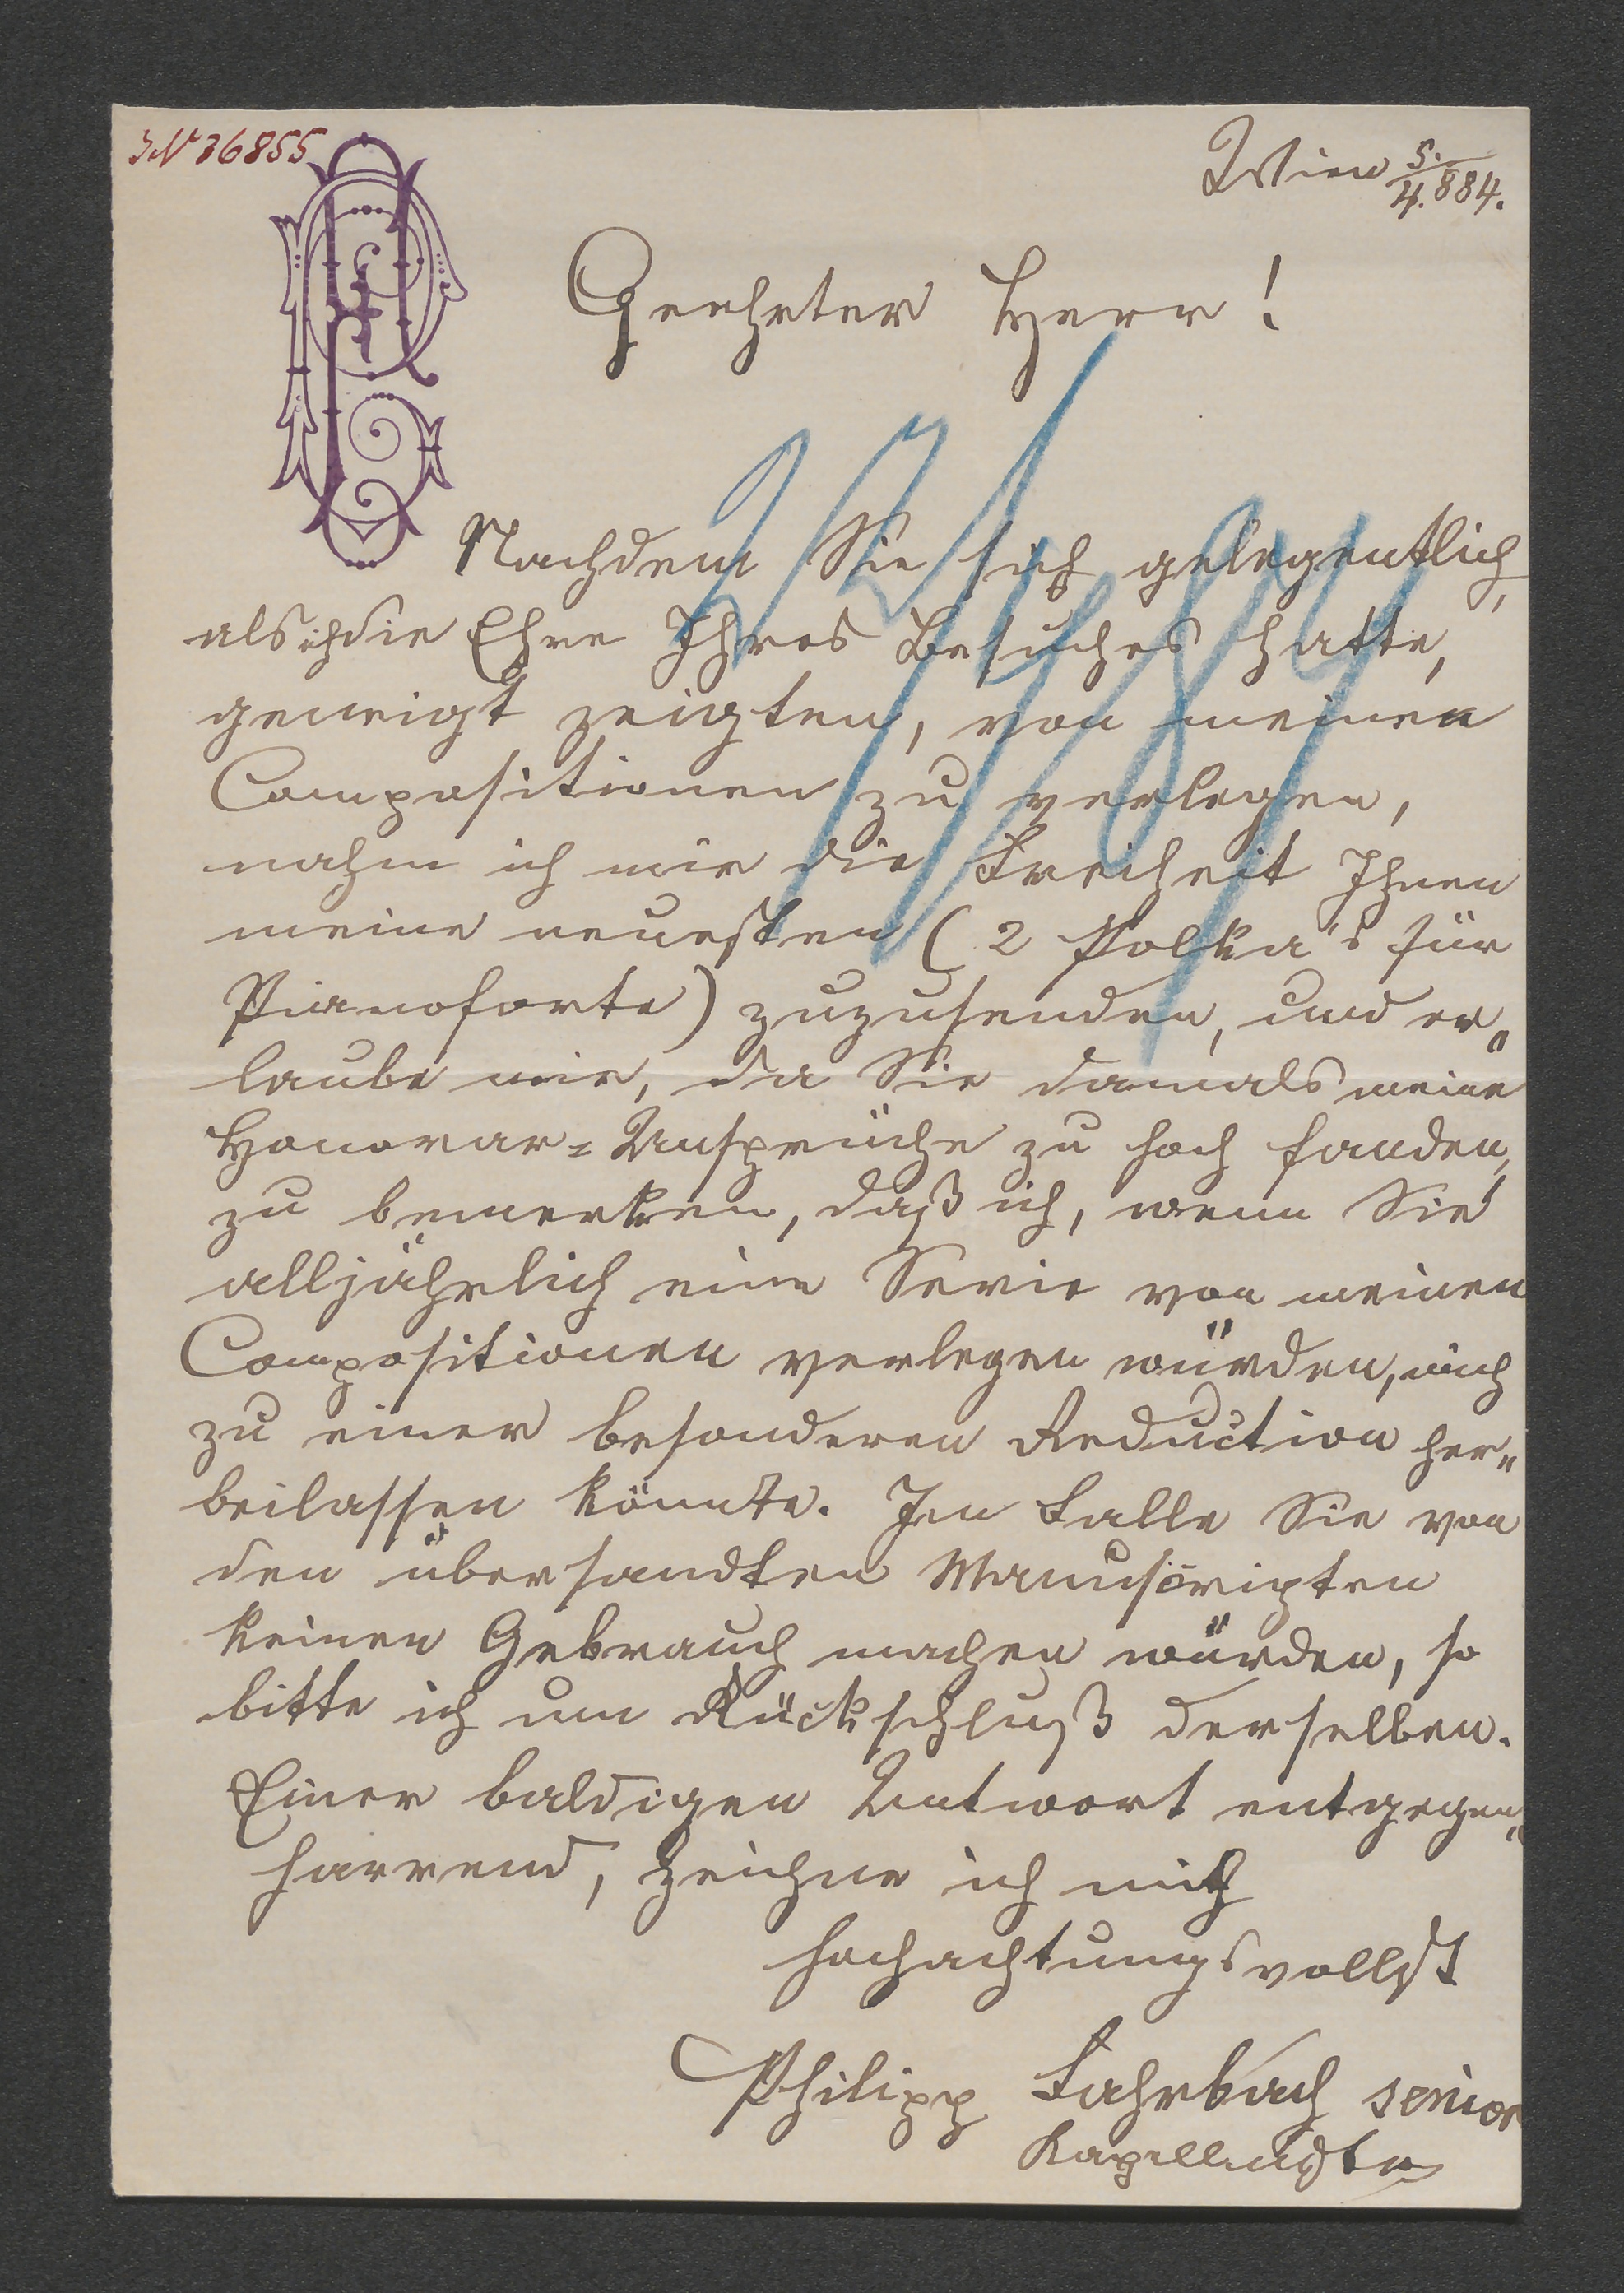 IN 36855
Wien 5./4. 884.
Geehrter Herr!
Nachdem Sie sich gelegentlich,
als ich die Ehre Ihres Besuches hatte,
geneigt zeigten, von meinen
Compositionen zu verlegen,
nahm ich mir die Freiheit Ihnen
meine neuesten (2 Polka's für
Pianoforte) zuzusenden, und er„
laube mir, da Sie damals meine
Honorar=Ansprüche zu hoch fanden,
zu bemerken, daß ich, wenn Sie
alljährlich eine Serie von meinen
Compositionen verlegen würden, mich
zu einer besonderen Reduction her„
beilassen könnte. Im Falle Sie von
den übersandten Manuscripten
keinen Gebrauch machen würden, so
bitte ich um Rückschluß derselben.
Einer baldigen Antwort entgegen„
harrend, zeichne ich mich
hochachtungsvollst
Philipp Fahrbach senior
Kapellmster